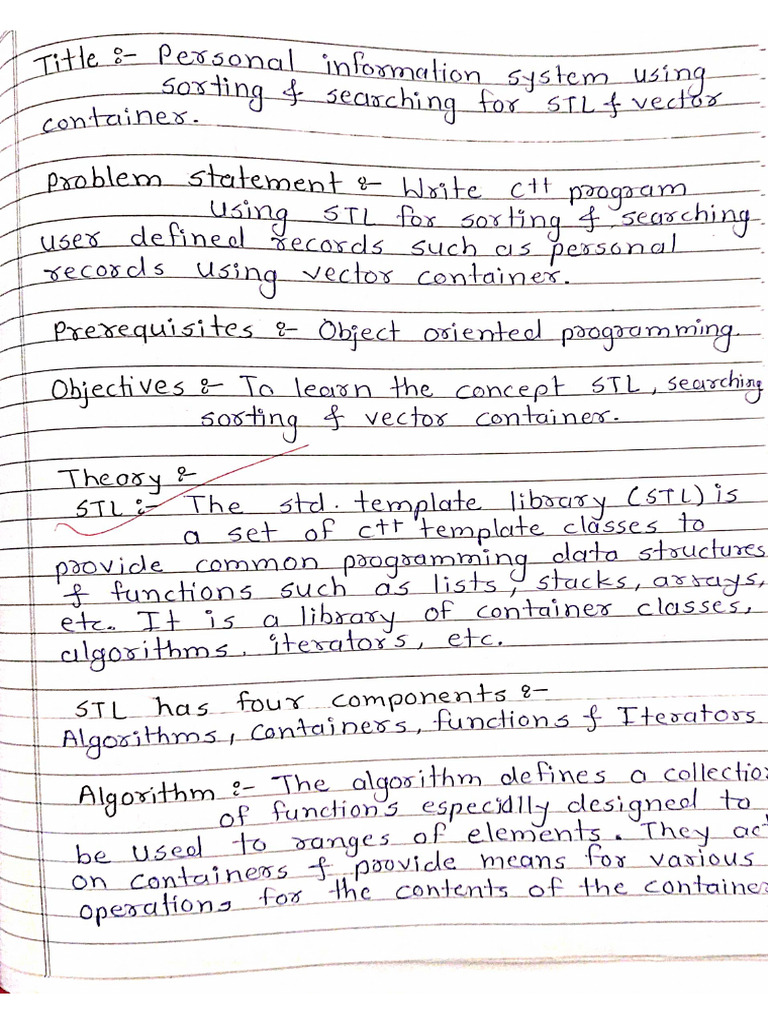 Title :- Personal information system using
sorting & searching for STL & vector
container.
Problem statement :- Write C++ program
using STL for sorting & searching
user defined records such as personal
records using vector container.
Prerequisites :- Object oriented programming
Objectives :- To learn the concept STL, searching
sorting & vector container.
Theory :-
STL :- The std. template library (STL) is
a set of C++ template classes to
provide common programming data structures
& functions such as lists, stacks, arrays,
etc. It is a library of container classes,
algorithms, iterators, etc.
STL has four components :-
Algorithms, containers, functions & Iterators
Algorithm :- The algorithm defines a collectio
of functions especially designed to
be used to ranges of elements. They act
on containers & provide means for various
operations for the contents of the container